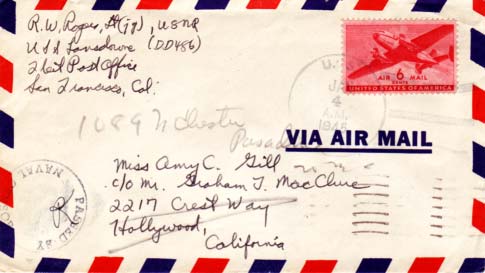 R.W. Roper, Lt(jg), USNR
USS Lansdowne (DD486)
Fleet Post Office
San Francisco, Cal.
AIR 6 MAIL
CENTS
UNITED STATES OF AMERICA
JA
4
A.M.
1089 N Chester
VIA AIR MAIL
Miss Amy C. Gill
c/o Mr. Graham T. MacClue
2217 Crest Way
Hollywood,
California
PASSED BY
NAVAL